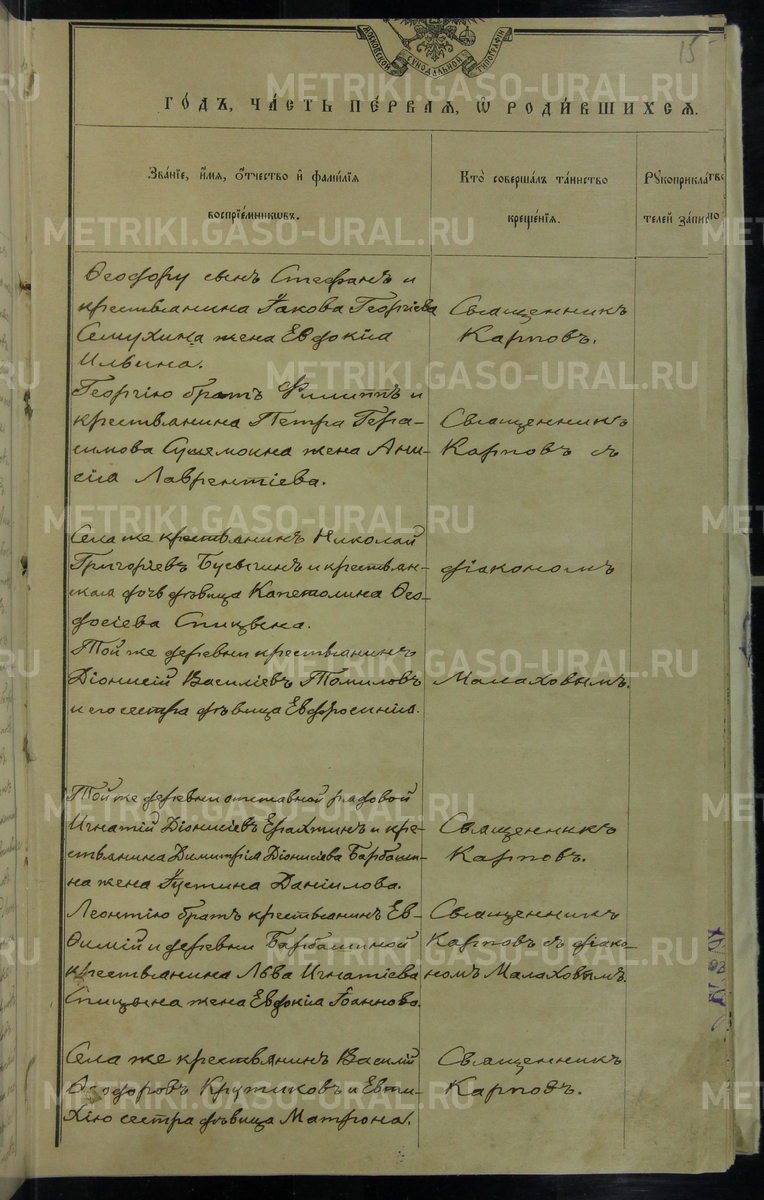 МОСКОВСКОЙ СѴНОДАЛЬНОЙ ТИПОГРАФІИ
15
METRIKI.GASO-URAL.RU
ГО́ДЪ, ЧА́СТЬ ПЕ́РВАѦ, Ѡ҆ РОДИ́ВШИХСѦ.
Зва́нїе, и҆́мѧ, ѻ҆́тчество и҆ фами́лїѧ
воспрїе́мникѡвъ.
Кто̀ соверша́лъ та́инство
креще́нїѧ.
Рꙋкоприкла́
телей за́пис
Ѳеодору сынъ Стефанъ и
крестьянина Іакова Георгіева
Семухина жена Евдокіа
Ильина.
Священникъ
Карповъ.
Георгію братъ Филиппъ и
крестьянина Петра Гера-
симова жена Ани-
сіа Лаврентіева.
Священникъ
Карповъ съ
Села же крестьянинъ Николай
Григоріевъ Бусыгинъ и крестьян-
ская дочь дѣвица Капетолина Ѳео-
досіева Спицына.
діакономъ
Той же деревни крестьянинъ
Діонисій Василіевъ Томиловъ
и его сестра дѣвица Евфросиніа.
Малаховымъ.
Той же деревни отставной рядовой
Игнатій Діонисіевъ Ерахтинъ и кре-
стьянина Димитріа Діонисіева Барбаши-
на жена Іустина Даніилова.
Священникъ
Карповъ.
Леонтію братъ крестьянинъ Ев-
ѳимій и деревни Барбашиной
крестьянина Льва Игнатіева
Спицына жена Евдокіа Іоаннова.
Священникъ
Карповъ съ діако-
номъ Малаховымъ.
Села же крестьянинъ Василій
Ѳеодоровъ Крутиковъ и Евти-
хію сестра дѣвица Матрона.
Священникъ
Карповъ.